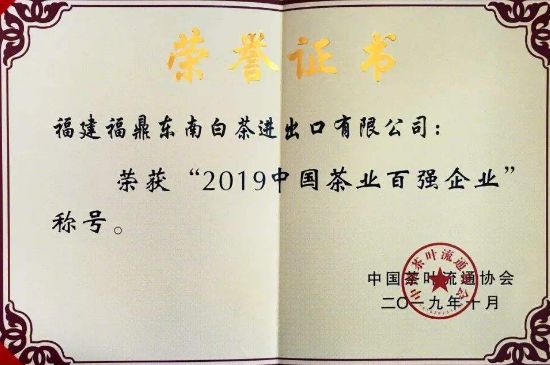 荣誉证书
福建福鼎东南白茶进出口有限公司：
荣获“2019中国茶业百强企业”
称号。
中国茶叶流通协会
二〇一九年十月
中国茶叶流通协会